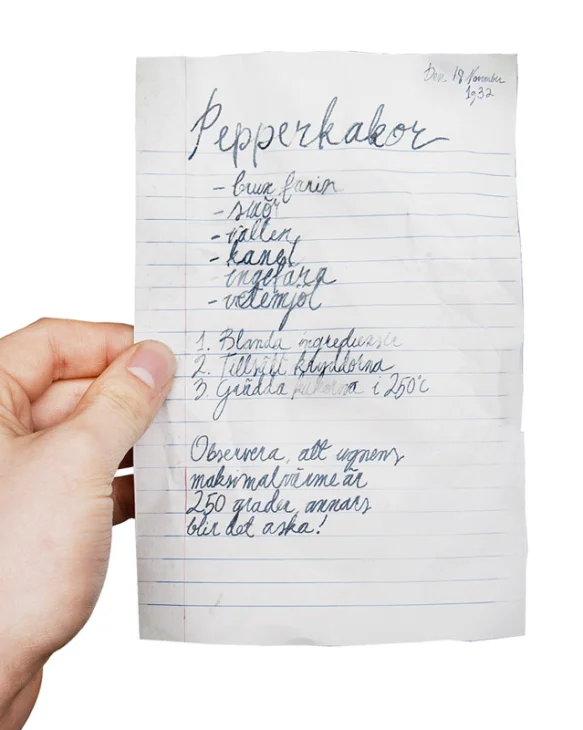 Den. 18 November
1932
Pepperkakor
- brun farin
- smör
- vatten
- kanel
ingefära
- vetemjöl
1. Blanda ingredienser
2. Tillsätt kryddorna
3. Grädda kakorna i 250°c
Observera, att ugnens
maksimalvärme är
250 grader, annars
blir det aska!